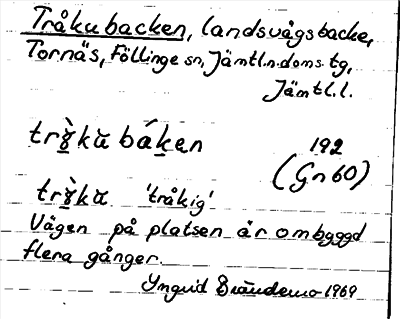 Tråkubacken, landsvägsbacke,
Tornäs, Föllinge sn, Jämtl.n.doms.tg,
Jämtl.l.
trɣ̀kŭ báken
192
(Gn 60)
trɣ̀kŭ 'tråkig'
Vägen på platsen är ombyggd
flera gånger.
Yngvid Brändemo 1969